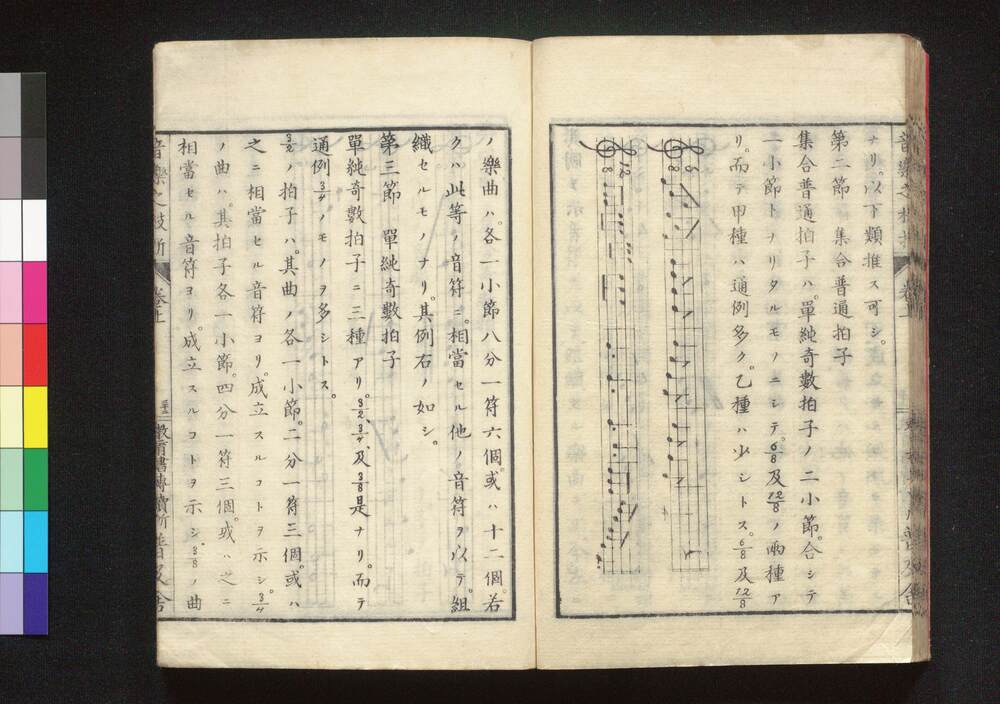 ナリ。以下類推ス可シ。
第二節 集合普通拍子
集合普通拍子ハ。單純奇數拍子ノ二小節。合シテ
一小節トナリタルモノニシテ。6/8及12/8ノ兩種ア
リ。而テ甲種ハ通例多ク。乙種ハ少シトス。6/8及12/8
6/8
12/8
ノ樂曲ハ。各一小節八分一符六個。或ハ十二個。若
クハ此等ノ音符ニ。相當セル他ノ音符ヲ以テ。組
織セルモノナリ。其例右ノ如シ。
第三節 單純奇數拍子
單純奇數拍子ニ三種アリ。3/2、3/4、及3/8是ナリ。而テ
通例3/4ノモノヲ多シトス。
3/2ノ拍子ハ。其曲ノ各一小節。二分一符三個。或ハ
之ニ相當セル音符ヨリ。成立スルコトヲ示シ。3/4
ノ曲ハ。其拍子各一小節。四分一符三個。或ハ之ニ
相當セル音符ヨリ。成立スルコトヲ示シ。3/8ノ曲
音樂之枝折 卷上
教育書房賣所 普及舍